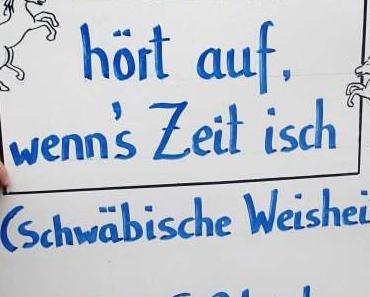 hört auf,
wenn's Zeit isch
(Schwäbische Weishei